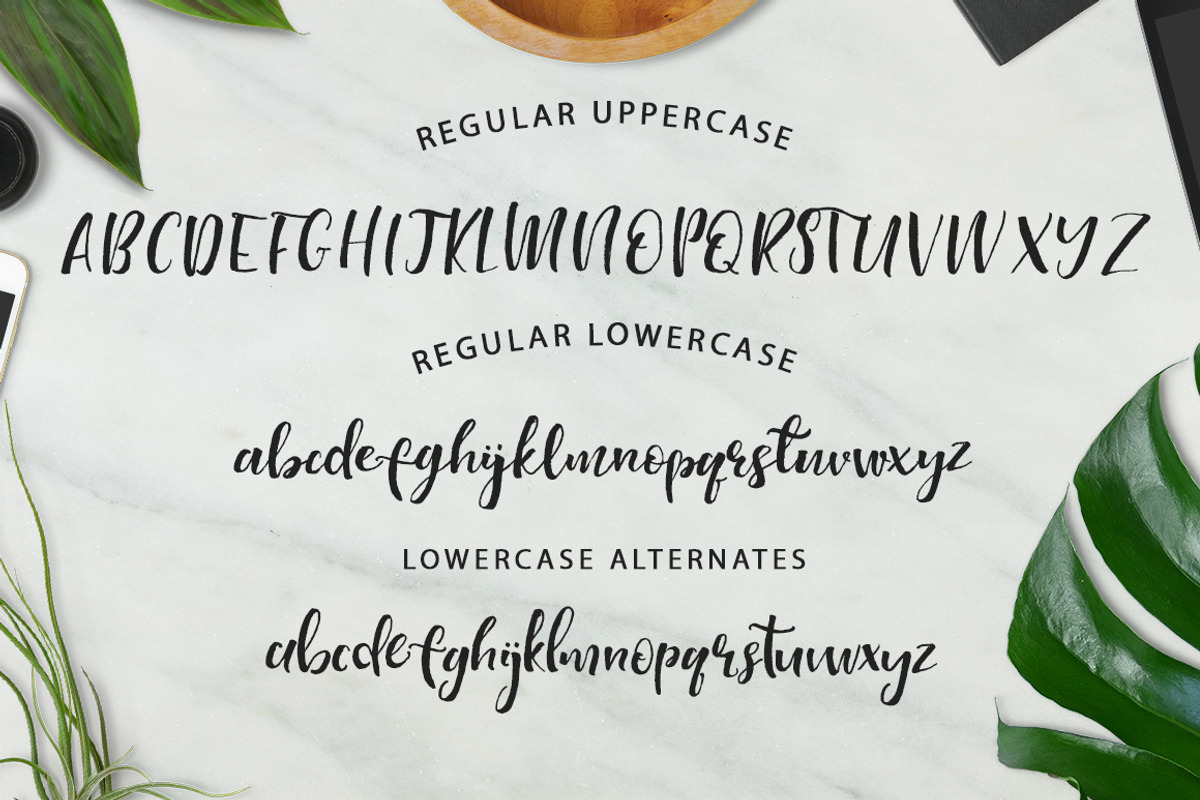 REGULAR UPPERCASE
ABCDEFGHIJKLMNOPQRSTUVWXYZ
REGULAR LOWERCASE
abcdefghijklmnopqrstuvwxyz
LOWERCASE ALTERNATES
abcdefghijklmnopqrstuvwxyz